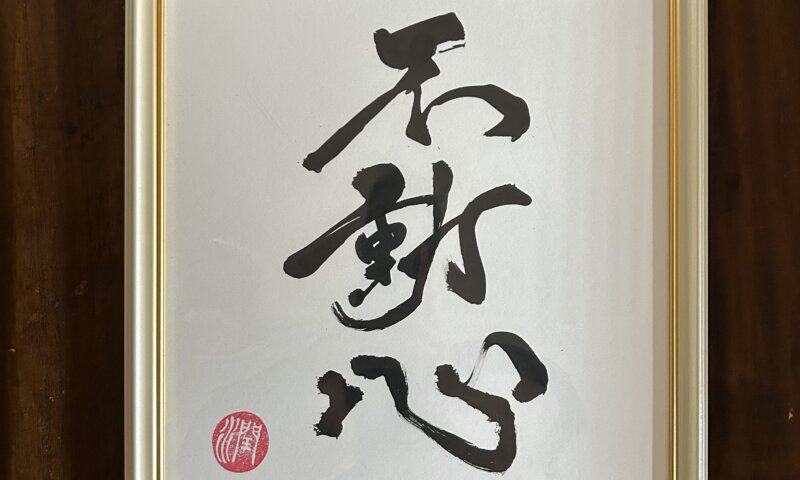 不動心
潤